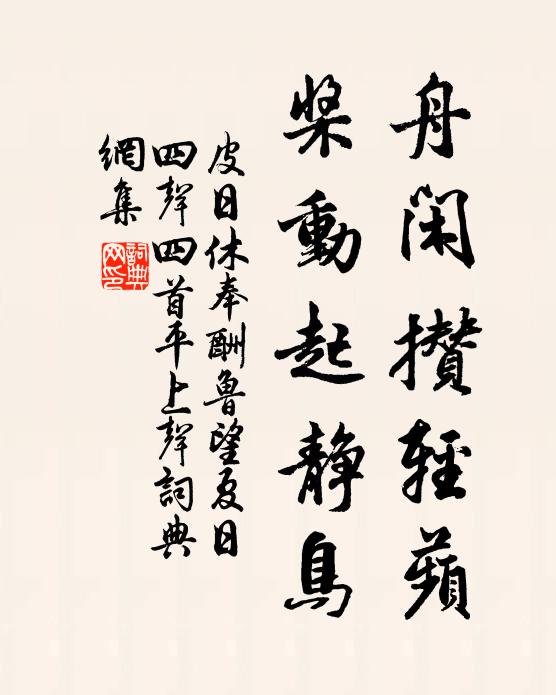 舟閑攢輕蘋
槳動起靜鳥
皮日休奉酬魯望夏日
四聲四首平上聲詞典
網集
詞典
网印